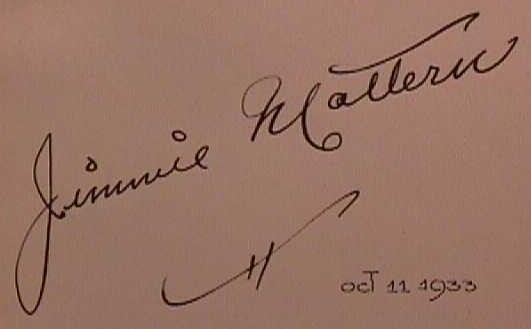 Jimmie Mattern
oct 11 1933